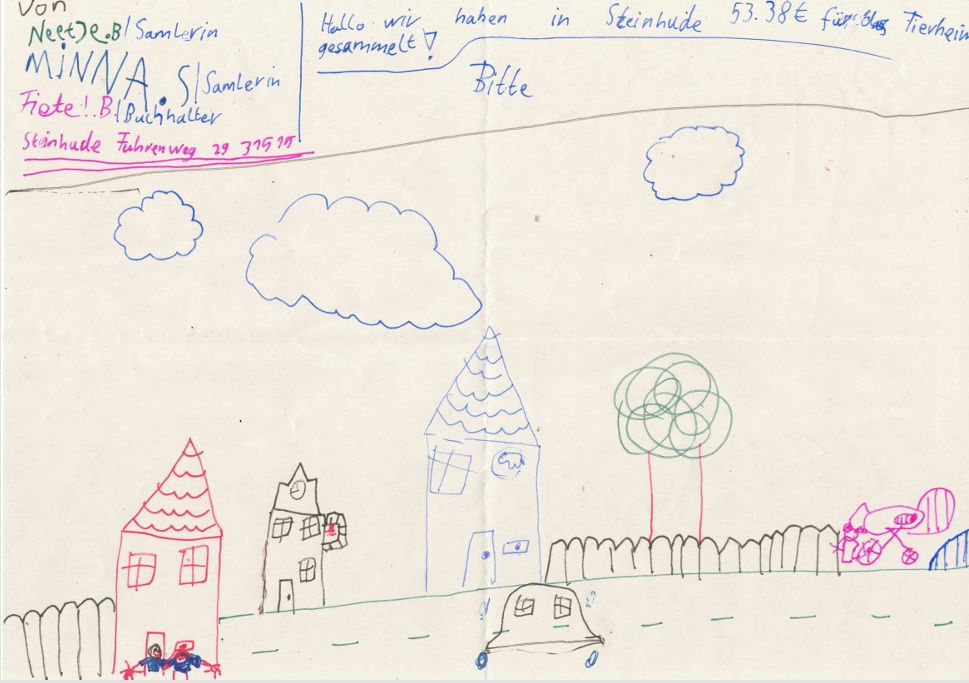 Von
Neetje.B/Samlerin
MiNNA.S/Samlerin
Fiete!.B/Buchhalter
Steinhude Fuhrenweg 29 31515
Hallo wir haben in Steinhude 53.38€ für das Tierheim
gesammelt!
Bitte